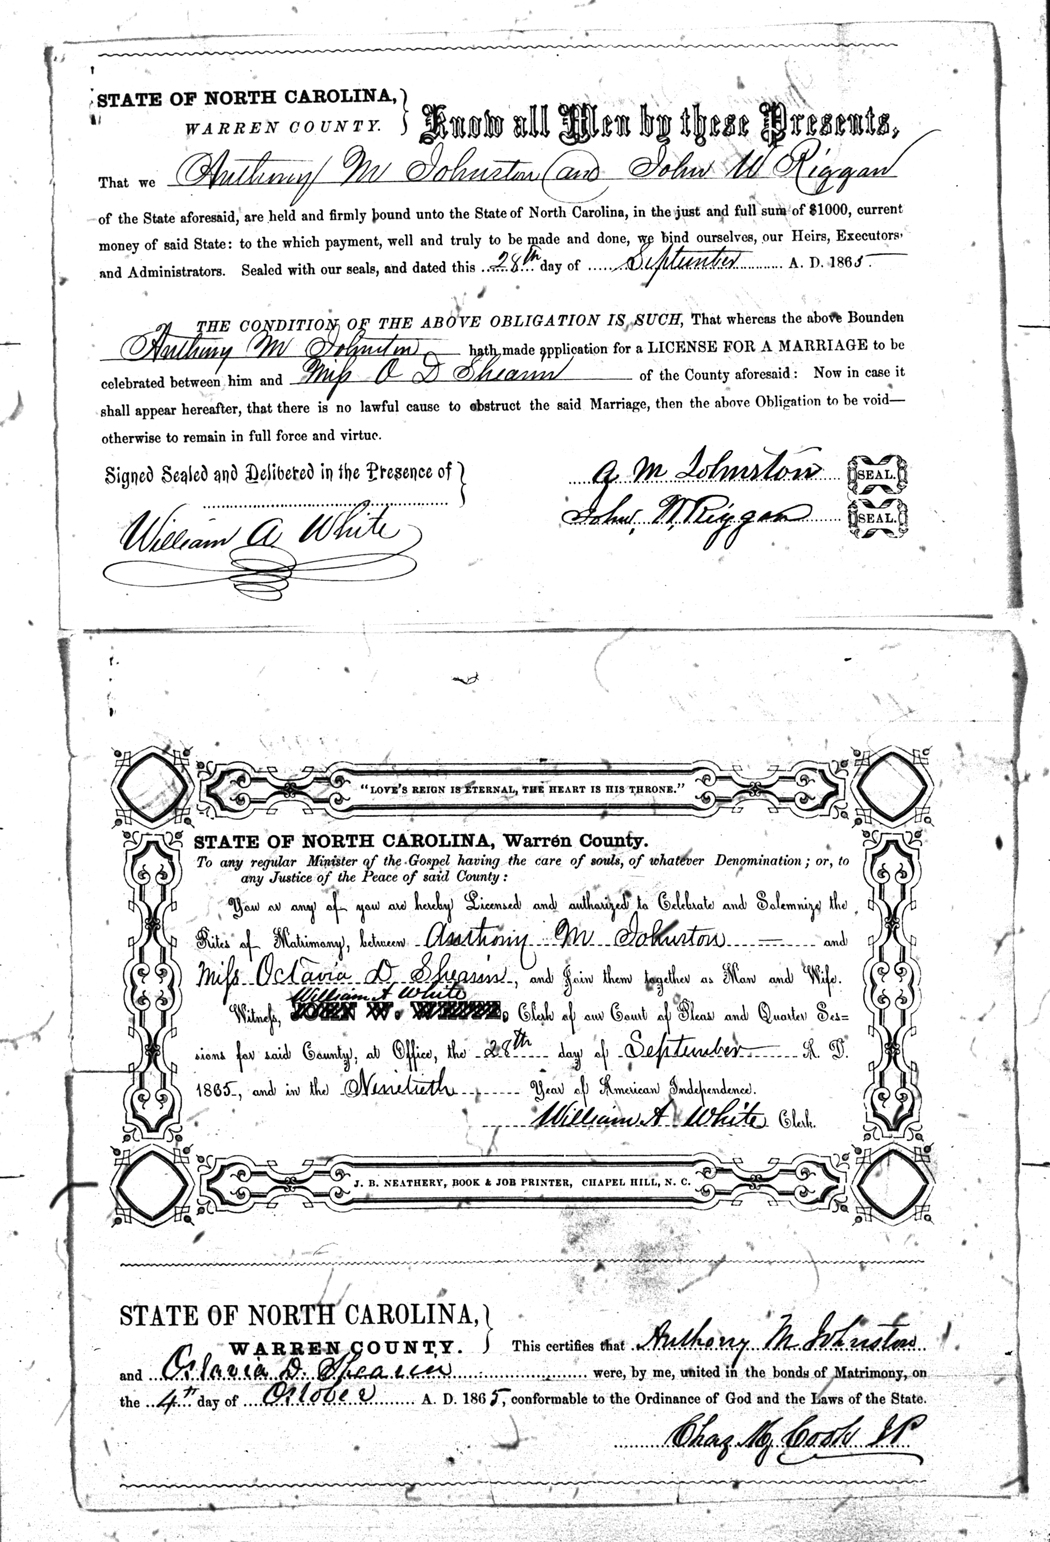 STATE OF NORTH CAROLINA,
WARREN COUNTY.
Know all Men by these Presents,
That we Anthony M Johnston and John W Riggan
of the State aforesaid, are held and firmly bound unto the State of North Carolina, in the just and full sum of $1000, current
money of said State: to the which payment, well and truly to be made and done, we bind ourselves, our Heirs, Executors
and Administrators. Sealed with our seals, and dated this 28th day of September A. D. 1865
THE CONDITION OF THE ABOVE OBLIGATION IS SUCH, That whereas the above Bounden
Anthony M Johnston hath made application for a LICENSE FOR A MARRIAGE to be
celebrated between him and Miss O D Shearin of the County aforesaid: Now in case it
shall appear hereafter, that there is no lawful cause to obstruct the said Marriage, then the above Obligation to be void—
otherwise to remain in full force and virtue.
Signed Sealed and Delivered in the Presence of
A M Johnston SEAL.
John W Riggan SEAL.
William A White
"LOVE'S REIGN IS ETERNAL, THE HEART IS HIS THRONE."
STATE OF NORTH CAROLINA, Warren County.
To any regular Minister of the Gospel having the care of souls, of whatever Denomination; or, to
any Justice of the Peace of said County:
You or any of you are hereby Licensed and authorized to Celebrate and Solemnize the
Rites of Matrimony, between Anthony M Johnston and
Miss Octavia D Shearin, and Join them together as Man and Wife.
William A White
Witness, JOHN W. WHITE, Clerk of our Court of Pleas and Quarter Ses=
sions for said County, at Office, the 28th day of September A. D.
1865, and in the Ninetieth Year of American Independence.
William A White Clerk.
J. B. NEATHERY, BOOK & JOB PRINTER, CHAPEL HILL, N. C.
STATE OF NORTH CAROLINA,
WARREN COUNTY.
This certifies that Anthony M Johnston
and Octavia D. Shearin were, by me, united in the bonds of Matrimony, on
the 4th day of October A. D. 1865, conformable to the Ordinance of God and the Laws of the State.
Chas M Cook JP